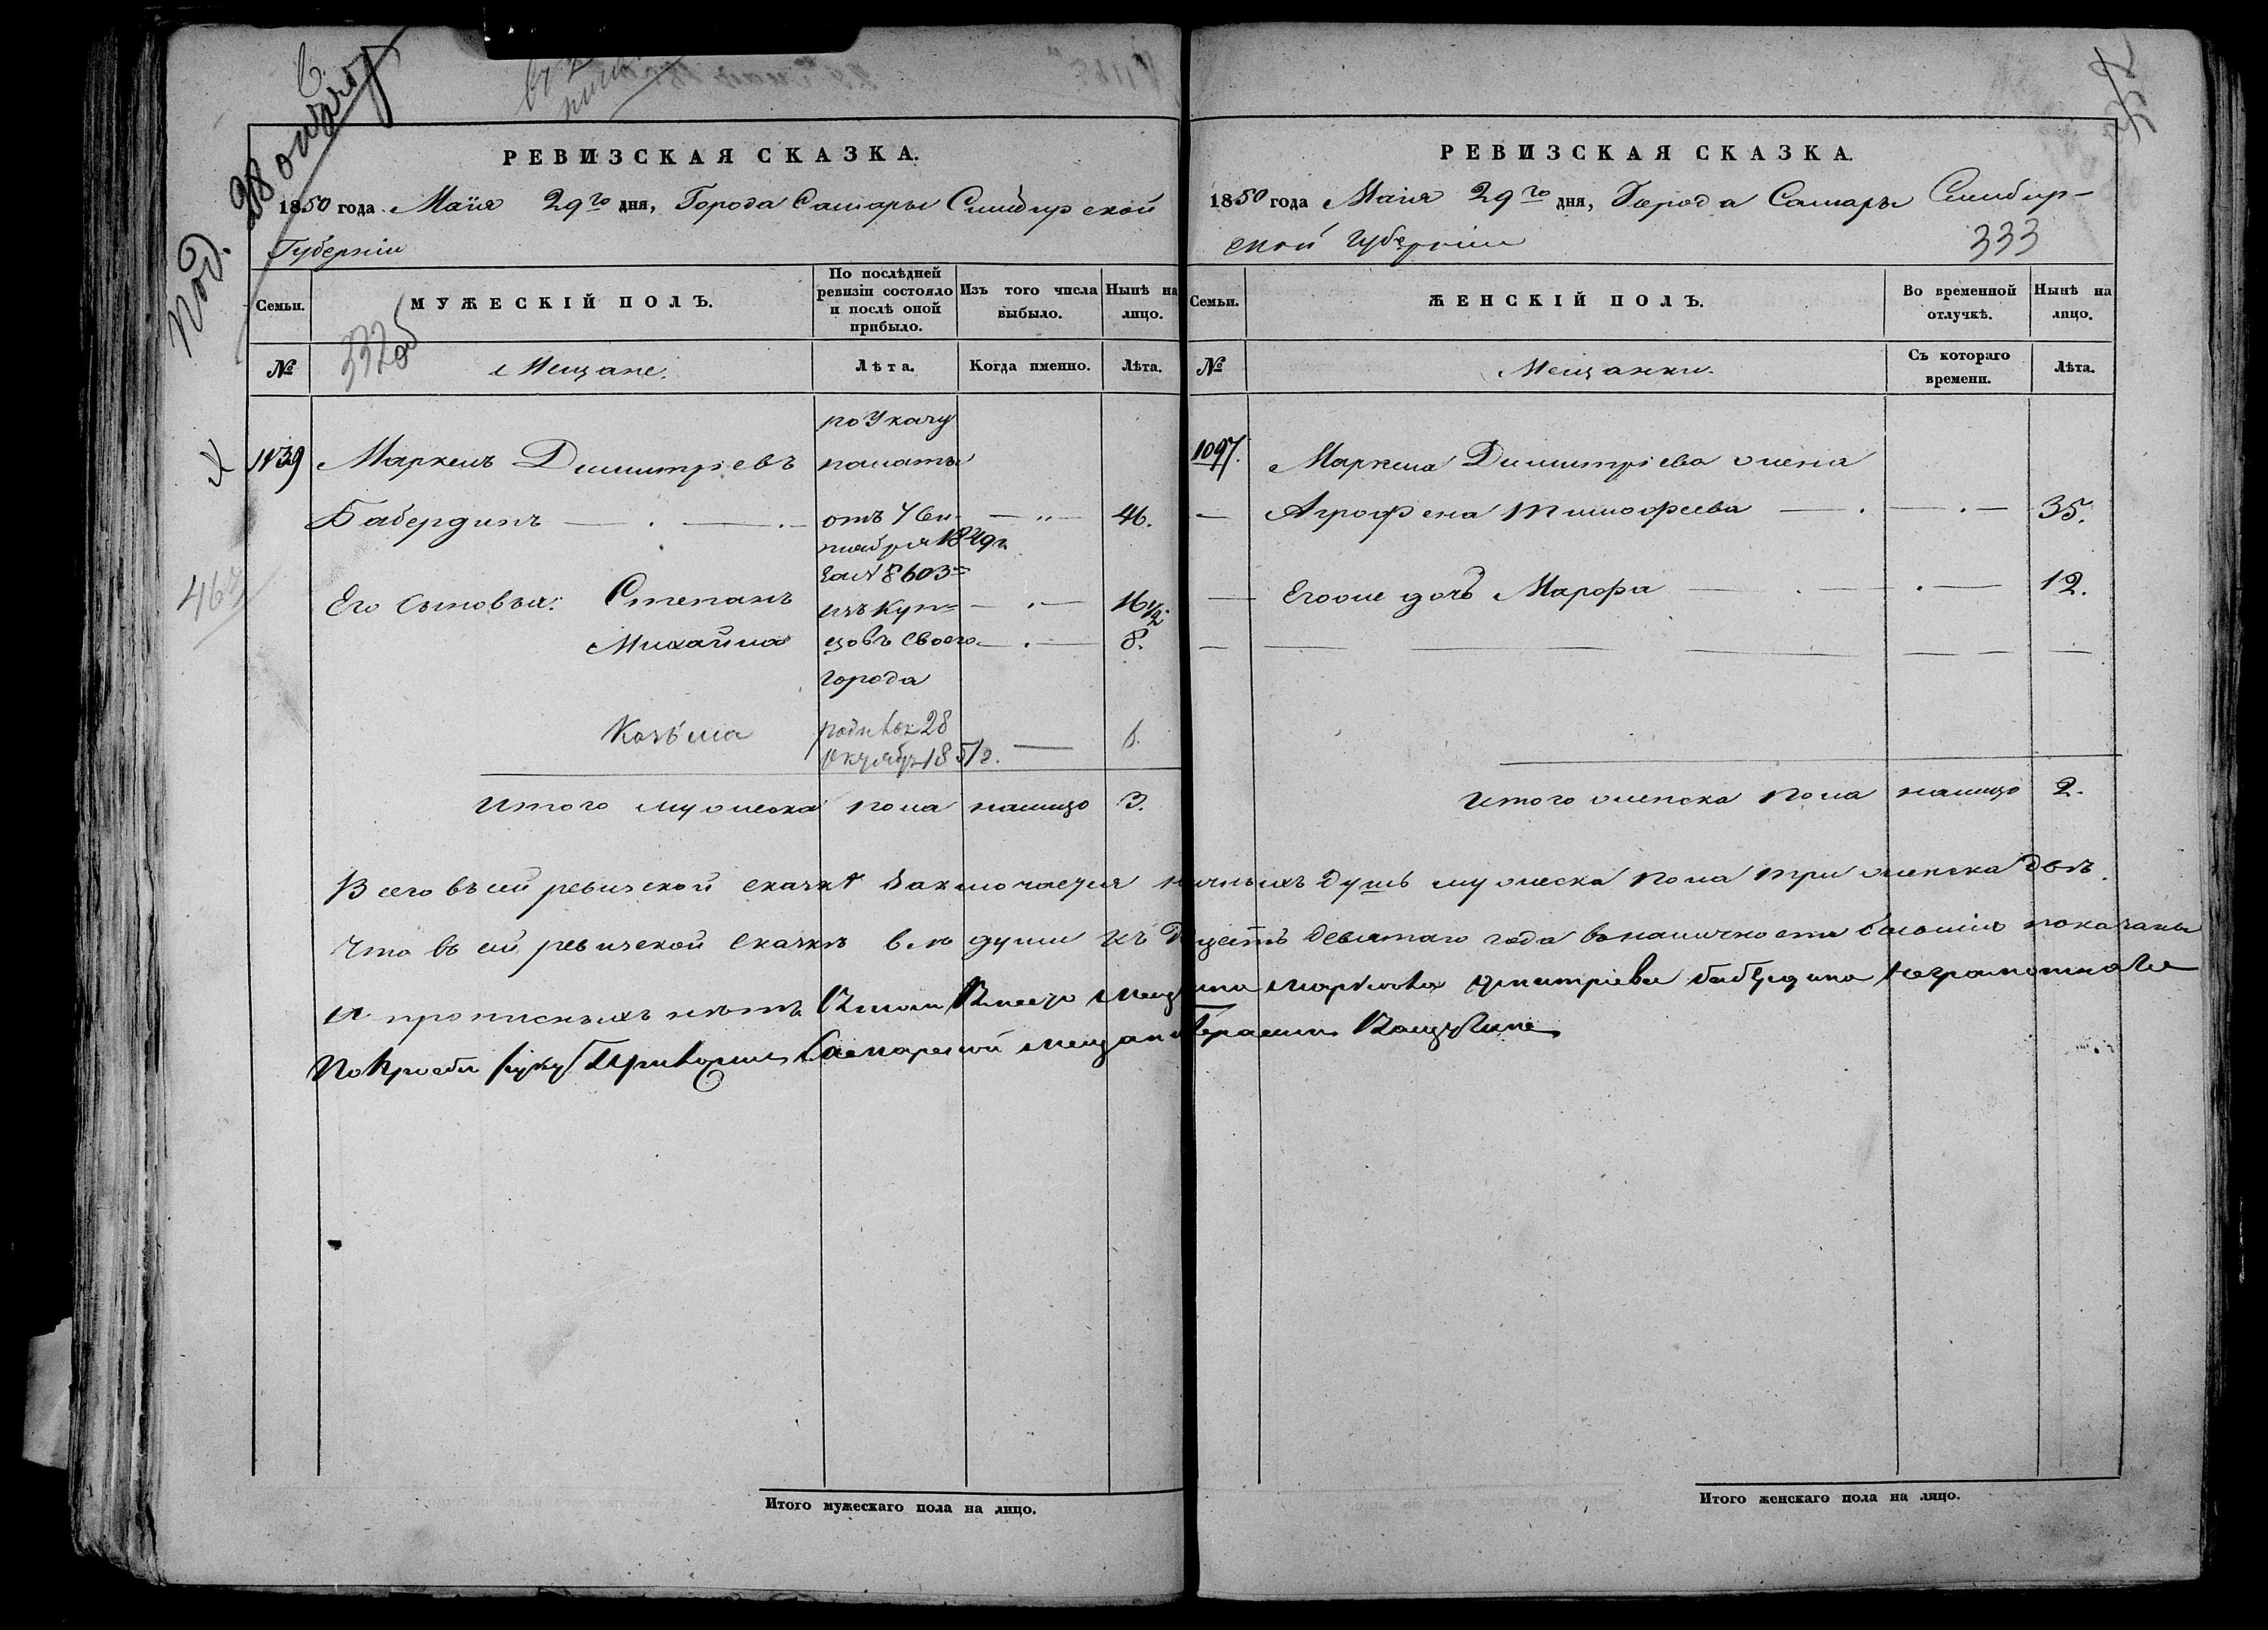 Под. 28 октяб
РЕВИЗСКАЯ СКАЗКА.
1850 года Маiя 29го дня, Города Самары Симбирской
Губернiи
Семьи.
МУЖЕСКIЙ ПОЛЪ.
По послѣдней ревизiи состояло и послѣ оной прибыло.
Изъ того числа выбыло.
Нынѣ на лицо.
332 об
№
Мещане.
Лѣта.
Когда именно.
Лѣта.
по Указу
1139 Маркелъ Димитрiевъ палаты
Бабердинъ — . — . — отъ 7 Сен- — „ — 46.
тября 1849 г.
за № 8603=
Его Сыновья: Степанъ изъ Куп= — . — 16 1/2.
Михайла цовъ своего — . — 8.
города
Козьма родився 28
Октября 1851 г. —
Итого мужеска пола налицо 3.
463
РЕВИЗСКАЯ СКАЗКА.
1850 года Маiя 29го дня, Города Самары Симбир-
ской Губернiи
333
Семьи.
ЖЕНСКIЙ ПОЛЪ.
Во временной отлучкѣ.
Нынѣ на лицо.
№
Мещанки.
Съ котораго времени.
Лѣта.
1097. Маркела Димитрiева жена
— Агрофена Тимофеева — . — . — 35.
— Егоже дочь Марфа — . — . — 12.
Итого женска пола налицо 2.
Всего въ сей ревизской сказкѣ заключается личныхъ душъ мужеска пола три женска двѣ.
Что въ сей ревизской сказкѣ всѣ души изъ девятаго года въ наличности бывшiя показаны
и прописныхъ нѣтъ Втом Вместо мещанина Маркела Дмитрiева Бабердина неграмотнаго
По Прозбе руку Приложил Самарской мещанин Герасим
Итого мужескаго пола на лицо.
Итого женскаго пола на лицо.